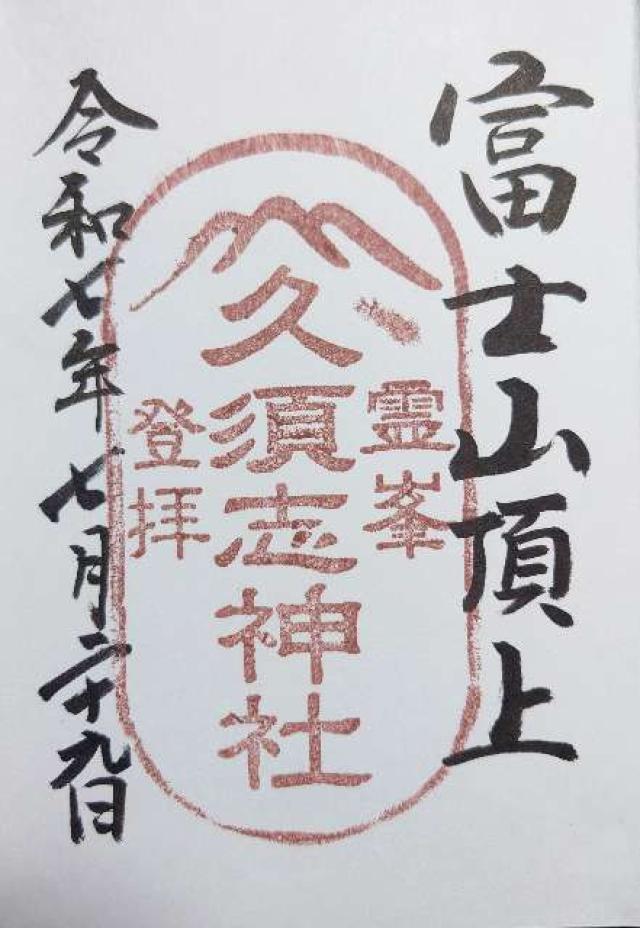 富士山頂上
霊峯
久須志神社
登拝
令和七年七月二十九日